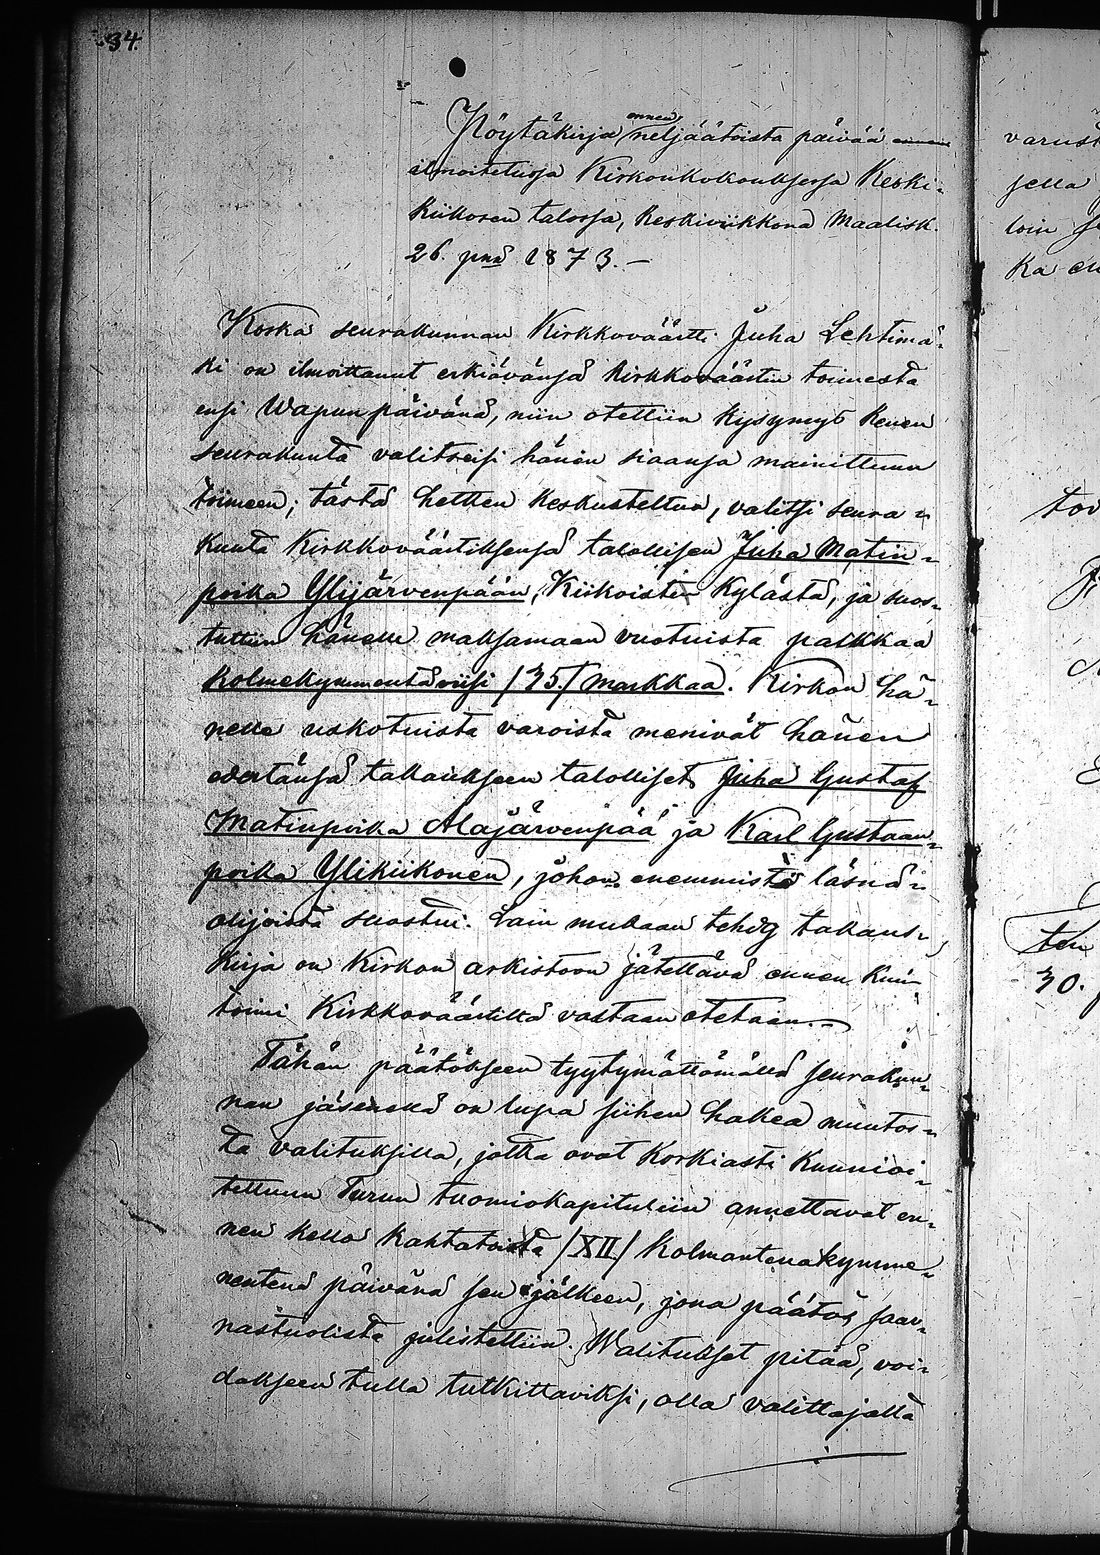 34.
Pöytäkirja ennen neljäätoista päivää ennen
ilmoitetussa Kirkonkokouksessa Keski-
kiikosen talossa, Keskiviikkona Maalisk.
26. pnä 1873. —
Koska seurakunnan Kirkkoväärtti Juha Lehtimä-
ki on ilmoittanut erkiävänsä kirkkoväärtin toimesta
ensi Wapunpäivänä, niin otettiin kysymys kenen
seurakunta valitseisi hänen siaansa mainittuun
toimeen; tästä hetken keskusteltua, valitsi seura-
kunta Kirkkoväärtiksensä talollisen Juha Matin-
poika Ylijärvenpään, Kiikoisten kylästä, ja suos-
tuttiin hänelle maksamaan vuotuista palkkaa
kolmekymmentäviisi /35/ markkaa. Kirkon hä-
nelle uskotuista varoista menivät hänen
edestänsä takaukseen talolliset Juha Gustaf
Matinpoika Alajärvenpää ja Karl Gustaan-
poika Ylikiikonen, johon enemmistö läsnä-
olijoista suostui. Lain mukaan tehty takaus-
kirja on Kirkon arkistoon jätettävä ennen kuin
toimi Kirkkoväärtiltä vastaan otetaan. —
Tähän päätökseen tyytymättömällä seurakun-
nan jäsenellä on lupa siihen hakea muutos-
ta valituksilla, jotka ovat Korkiasti Kunnioi-
tettuun Turun tuomiokapituliin annettavat en-
nen kello kahtatoista /XII/ kolmantenakymme-
nentenä päivänä sen jälkeen, jona päätös saar-
nastuolista julistettiin. Walitukset pitää, voi-
dakseen tulla tutkittaviksi, olla valittajalta
varust
sella
loin
ka en
ten
30.